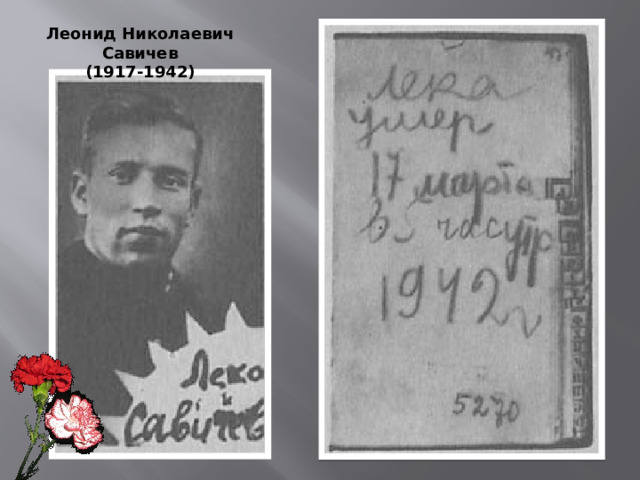 Леонид Николаевич
Савичев
(1917-1942)
Лека
Савичев
Лека
умер
17 марта
в 5 часутр
1942г
5270